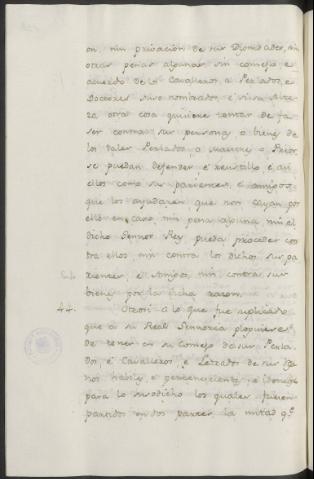 on, nin privacion de sus Dignidades, nin
otras penas algunas sin consejo, e
acuerdo de los Cavalleros, e Perlados, e
Doctores suso nombrados, e si su Alte-
za otra cosa quisiere tentar de fa-
ser contra sus personas o bienes de
los tales Perlados, o Maestres o Prior,
se puedan defender e resistillo, e aqu-
ellos como sus parientes, e amigos,
que los ayudaren que non cayan por
ello en caso, nin pena alguna, nin el
dicho Sennor Rey pueda proceder con-
tra ellos, nin contra los dichos sus pa-
rientes, e Amigos, nin contra sus
bienes por la dicha razon.
44. Otrosi a lo que fue suplicado
que a su Real Sennoria ploguiese
de tener en su Consejo de sus Perla-
dos, e Cavalleros, e Letrados de sus Reg-
nos habiles e pertenescientes, e idoneos
para lo susodicho los quales fuesen
partidos en dos partes, la mitad q.e